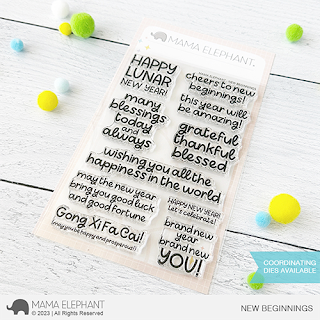 MAMA ELEPHANT.
HAPPY
LUNAR
NEW YEAR!
many
blessings
today
and
always
cheers to new
beginnings!
this year will
be amazing!
grateful
thankful
blessed
wishing you all the
happiness in the world
may the new year
bring you good luck
and good fortune
Gong Xi Fa Cai!
(may you be happy and prosperous!)
HAPPY NEW YEAR!
Let's celebrate!
brand new
year
brand new
YOU!
COORDINATING
DIES AVAILABLE
MAMA ELEPHANT
© 2023 | All Rights Reserved
NEW BEGINNINGS